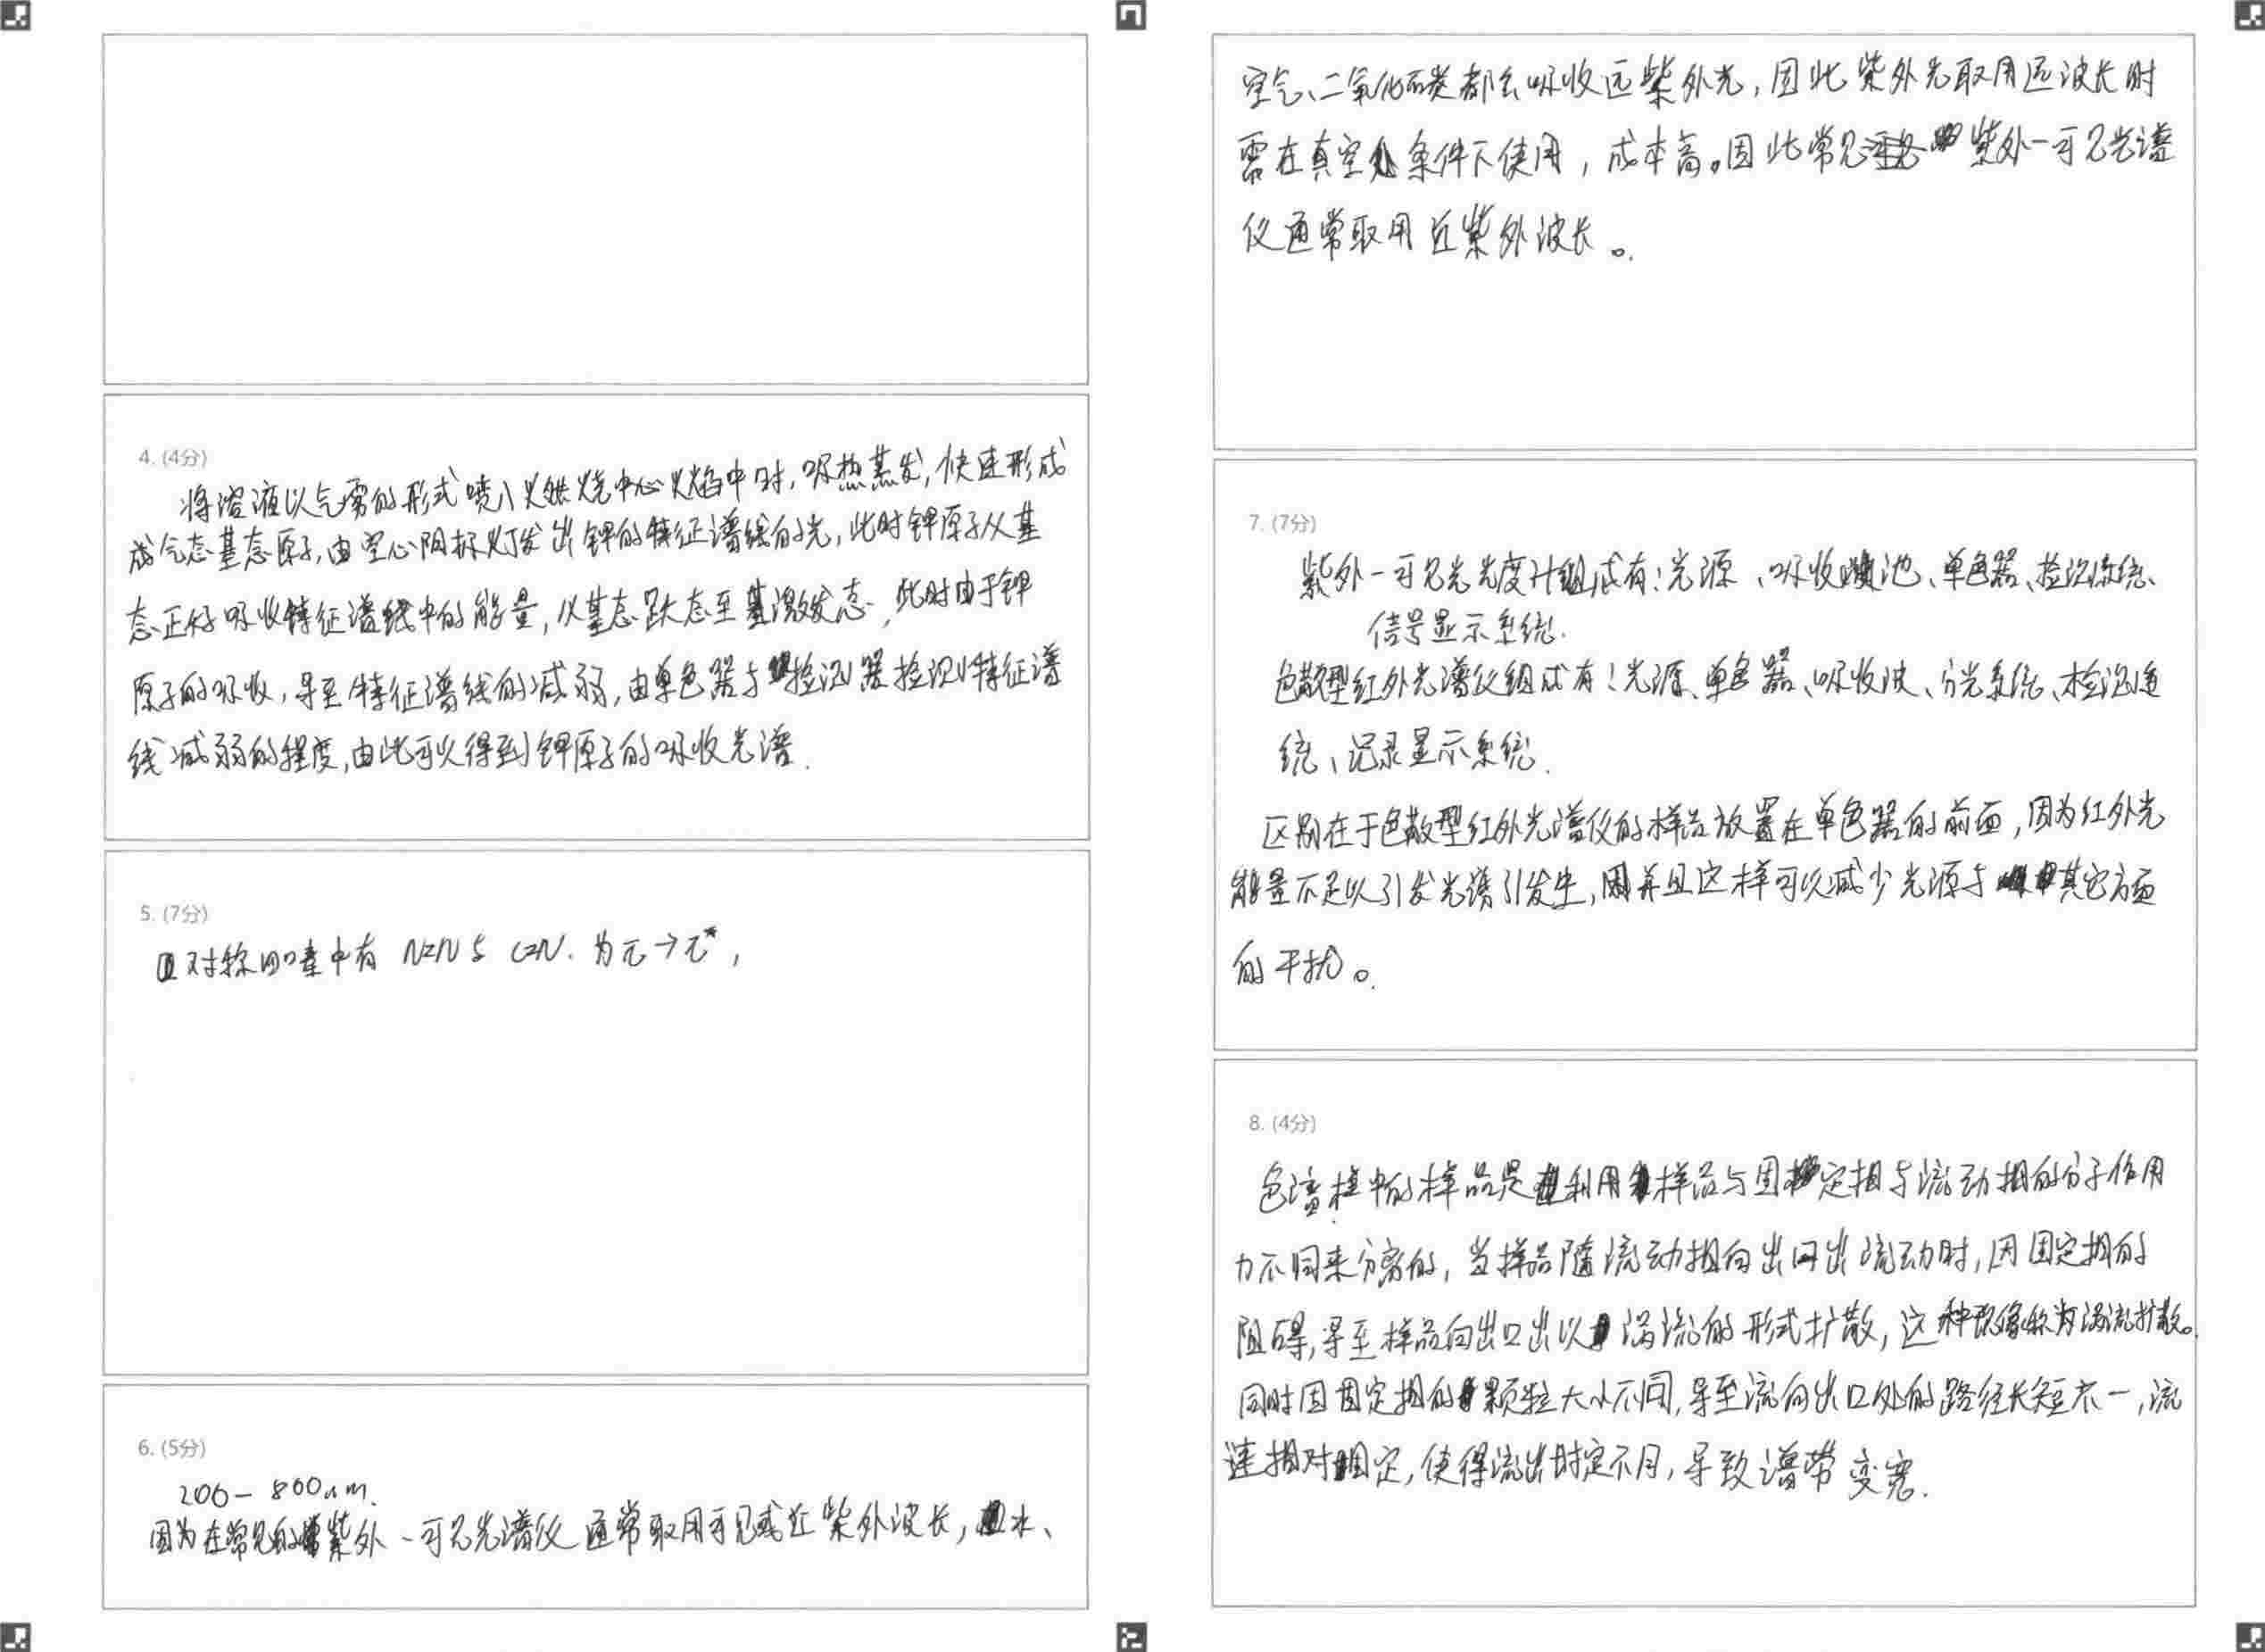 4. (4分)
将溶液以气雾的形式喷入火燃烧中心火焰中时,吸热蒸发,快速形成
成气态基态原子,由空心阴极灯发出钾的特征谱线的光,此时钾原子从基
态正好吸收特征谱线中的能量,从基态跃态至激发态,此时由于钾
原子的吸收,导至特征谱线的减弱,由单色器与检测器检测特征谱
线减弱的程度,由此可以得到钾原子的吸收光谱.
5. (7分)
对称四嗪中有 N=N 与 C=N. 为π→π*,
6. (5分)
200-800nm.
因为在常见的紫外-可见光谱仪通常取用可见或近紫外波长,水、
空气、二氧化碳类都会吸收远紫外光,因此紫外光取用远波长时
需在真空条件下使用,成本高。因此常见紫外-可见光谱
仪通常取用近紫外波长。
7. (7分)
紫外-可见光光度计组成有:光源、吸收池、单色器、检测系统、
信号显示系统.
色散型红外光谱仪组成有:光源、单色器、吸收池、分光系统、检测连
统、记录显示系统.
区别在于色散型红外光谱仪的样品放置在单色器的前面,因为红外光
能量不足以引发光诱引发生,并且这样可以减少光源与其它方面
的干扰。
8. (4分)
色谱柱中的样品是利用样品与固定相与流动相的分子作用
力不同来分离的,当样品随流动相向出口出流动时,因固定相的
阻碍,导至样品向出口出以涡流的形式扩散,这种现像称为涡流扩散。
同时因固定相的颗粒大小不同,导至流向出口处的路径长短不一,流
速相对固定,使得流出时定不同,导致谱带变宽.